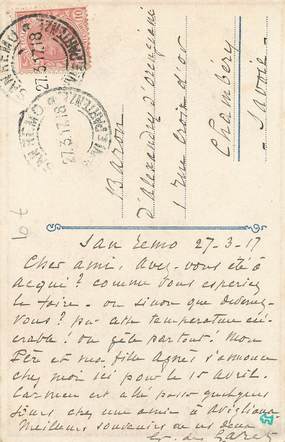 SAN REMO
27.3.17.18
SAN REMO
27.3.17.18
Baron
d'Alexandry d'Orengiani
1 rue Croix d'or
Chambéry
Savoie
San Remo 27-3-17
Cher ami, avez-vous été à
Acqui? comme vous espériez
le faire - ou sinon que devenez-
vous? par cette température
! on gèle partout! Mon
Père et ma fille Agnès s'annonce
chez moi ici pour le 15 avril.
Carmen est allé passer quelques
jours chez une amie à Avigliana
Meilleurs souvenirs de nous deux